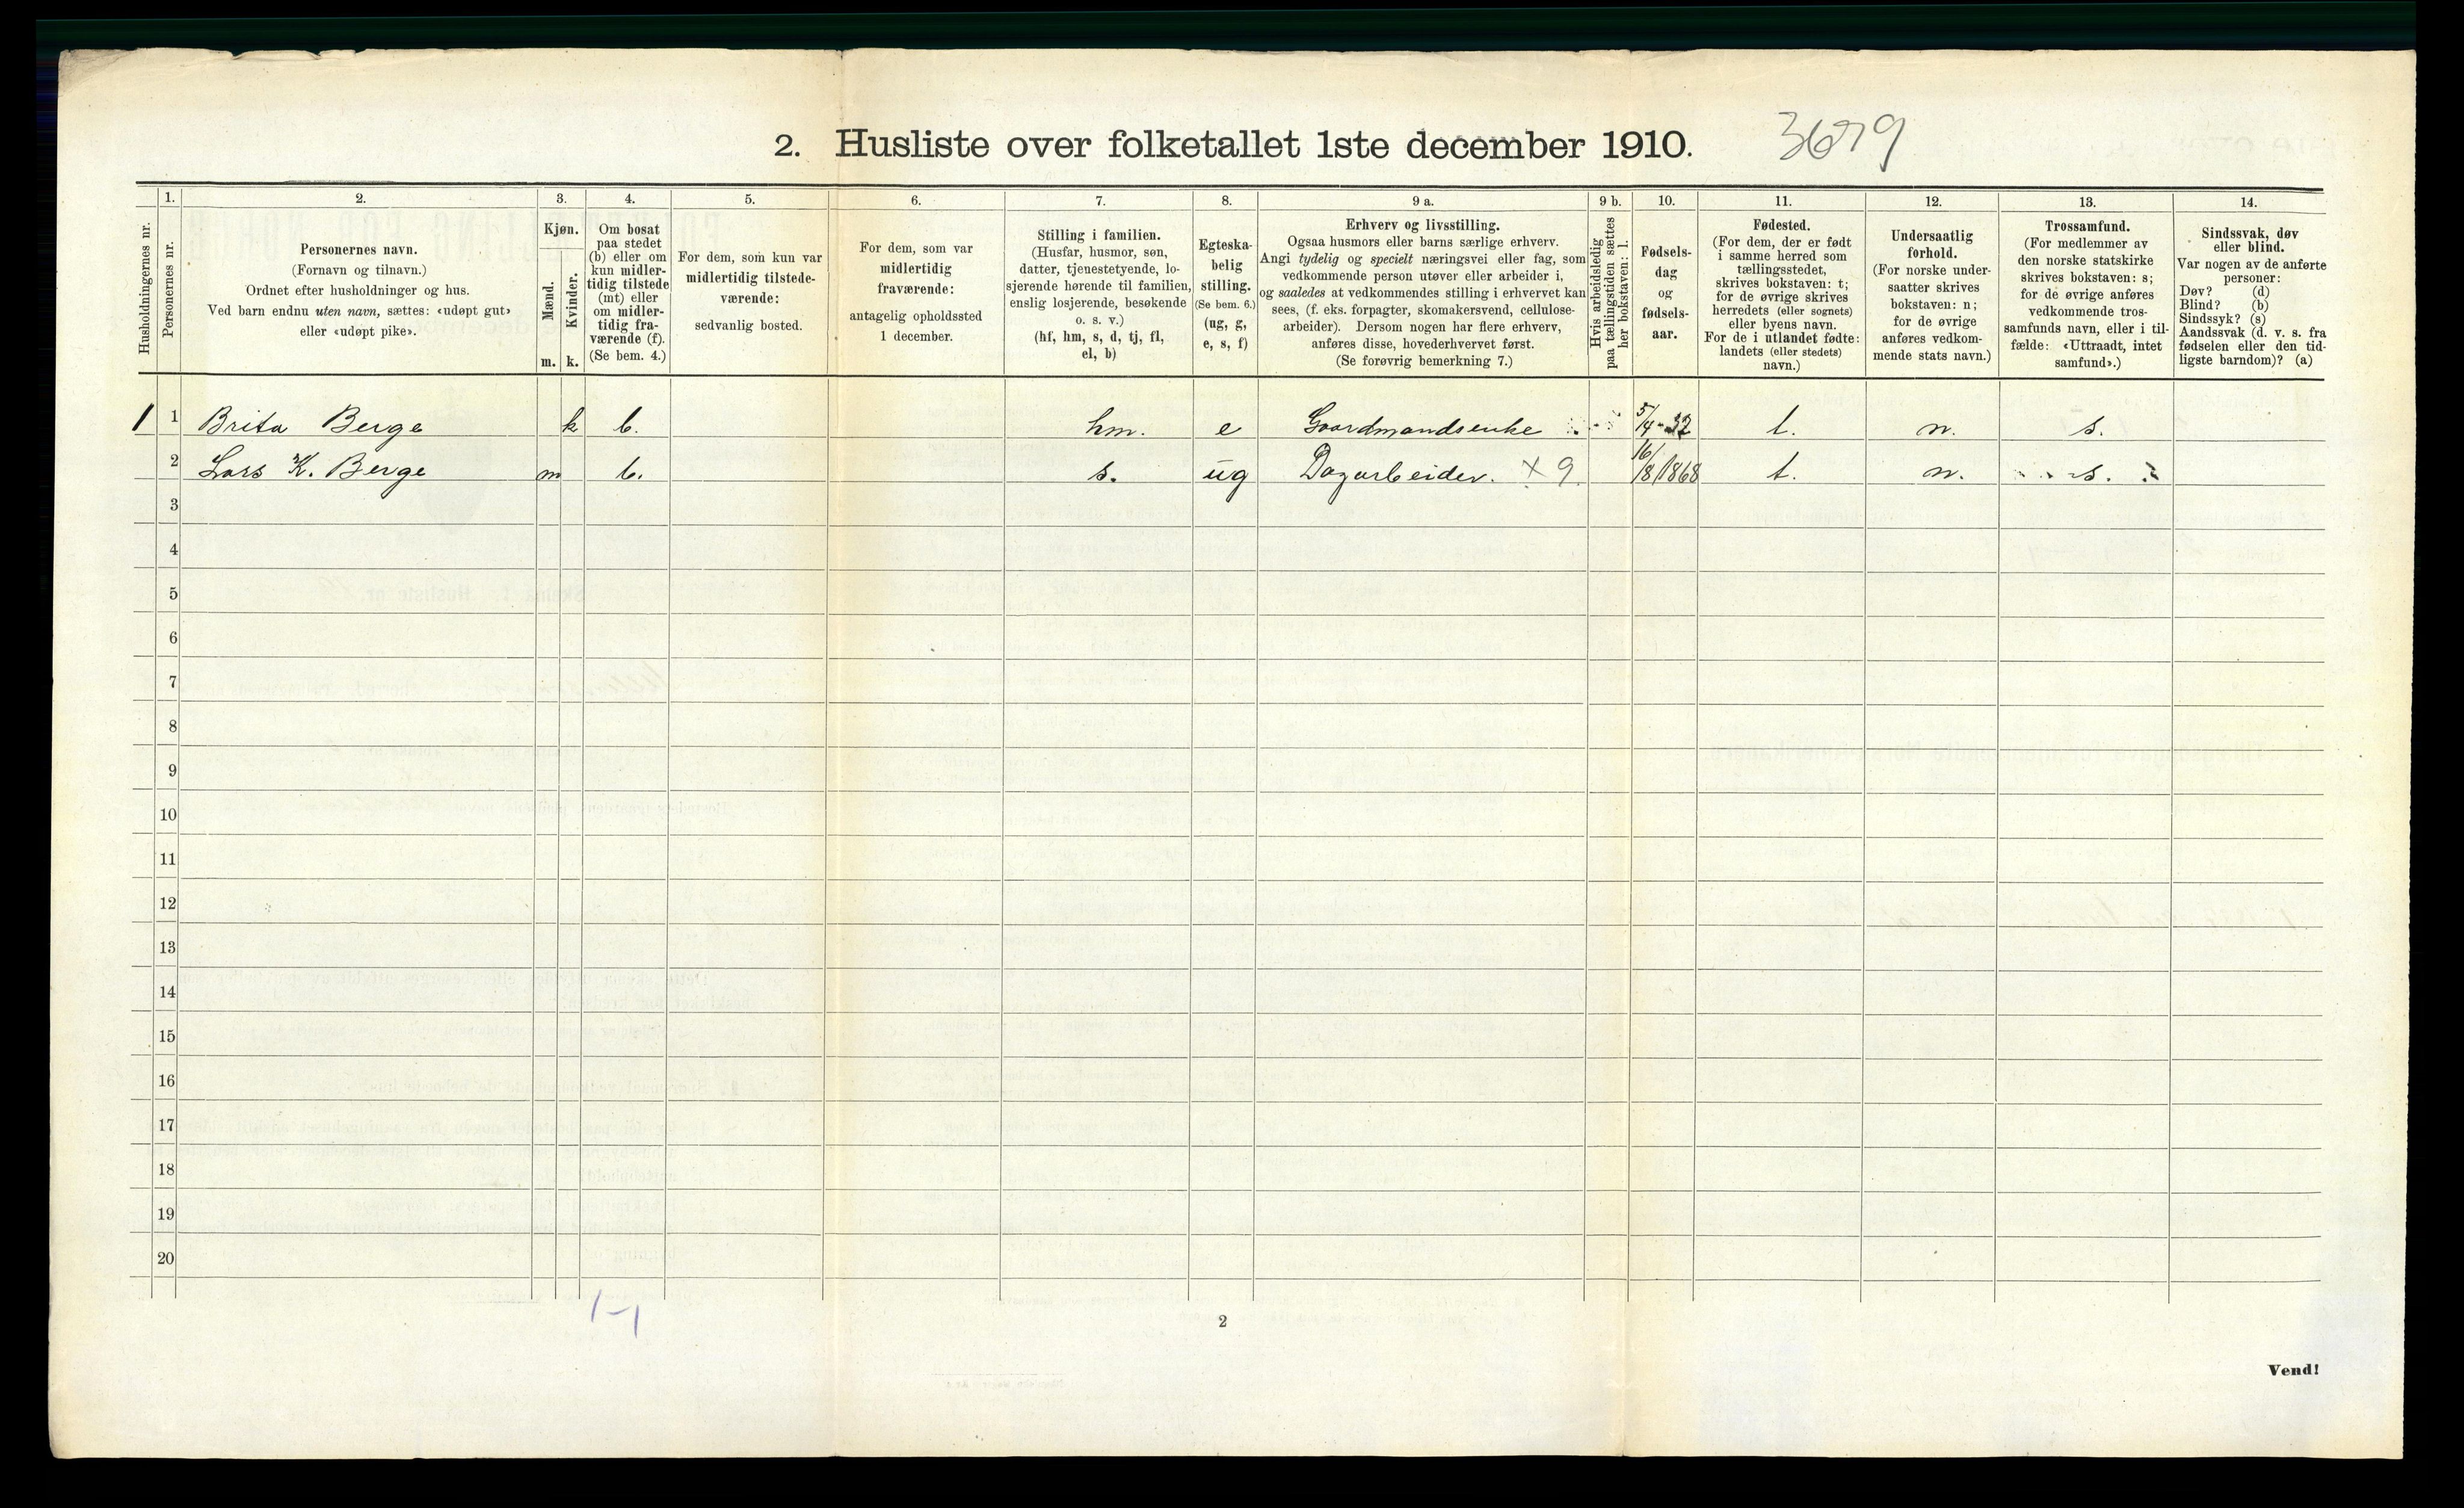 2. Husliste over folketallet 1ste december 1910. 3679
Husholdningernes nr.
1.
Personernes nr.
2.
Personernes navn.
(Fornavn og tilnavn.)
Ordnet efter husholdninger og hus.
Ved barn endnu uten navn, sættes: «udøpt gut»
eller «udøpt pike».
3.
Kjøn.
Mænd.
Kvinder.
m. k.
4.
Om bosat
paa stedet
(b) eller om
kun midler-
tidig tilstede
(mt) eller
om midler-
tidig fra-
værende (f).
(Se bem. 4.)
5.
For dem, som kun var
midlertidig tilstede-
værende:
sedvanlig bosted.
6.
For dem, som var
midlertidig
fraværende:
antagelig opholdssted
1 december.
7.
Stilling i familien.
(Husfar, husmor, søn,
datter, tjenestetyende, lo-
sjerende hørende til familien,
enslig losjerende, besøkende
o. s. v.)
(hf, hm, s, d, tj, fl,
el, b)
8.
Egteska-
belig
stilling.
(Se bem. 6.)
(ug, g,
e, s, f)
9 a.
Erhverv og livsstilling.
Ogsaa husmors eller barns særlige erhverv.
Angi tydelig og specielt næringsvei eller fag, som
vedkommende person utøver eller arbeider i,
og saaledes at vedkommendes stilling i erhvervet kan
sees, (f. eks. forpagter, skomakersvend, cellulose-
arbeider). Dersom nogen har flere erhverv,
anføres disse, hovederhvervet først.
(Se forøvrig bemerkning 7.)
9 b.
Hvis arbeidsledig
paa tællingstiden sættes
her bokstaven: l.
10.
Fødsels-
dag
og
fødsels-
aar.
11.
Fødested.
(For dem, der er født
i samme herred som
tællingsstedet,
skrives bokstaven: t;
for de øvrige skrives
herredets (eller sognets)
eller byens navn.
For de i utlandet fødte:
landets (eller stedets)
navn.)
12.
Undersaatlig
forhold.
(For norske under-
saatter skrives
bokstaven: n;
for de øvrige
anføres vedkom-
mende stats navn.)
13.
Trossamfund.
(For medlemmer av
den norske statskirke
skrives bokstaven: s;
for de øvrige anføres
vedkommende tros-
samfunds navn, eller i til-
fælde: «Uttraadt, intet
samfund».)
14.
Sindssvak, døv
eller blind.
Var nogen av de anførte
personer:
Døv? (d)
Blind? (b)
Sindssyk? (s)
Aandssvak (d. v. s. fra
fødselen eller den tid-
ligste barndom)? (a)
1 1 Brita Berge k b. hm. e Gaardmandsenke 5/4-32 t. n. s.
2 Lars K. Berge m b. s. ug Dagarbeider. X 9. 16/8/1868 t. n. s.
3
4
5
6
7
8
9
10
11
12
13
14
15
16
17
18
19
20
1-1
2
Vend!